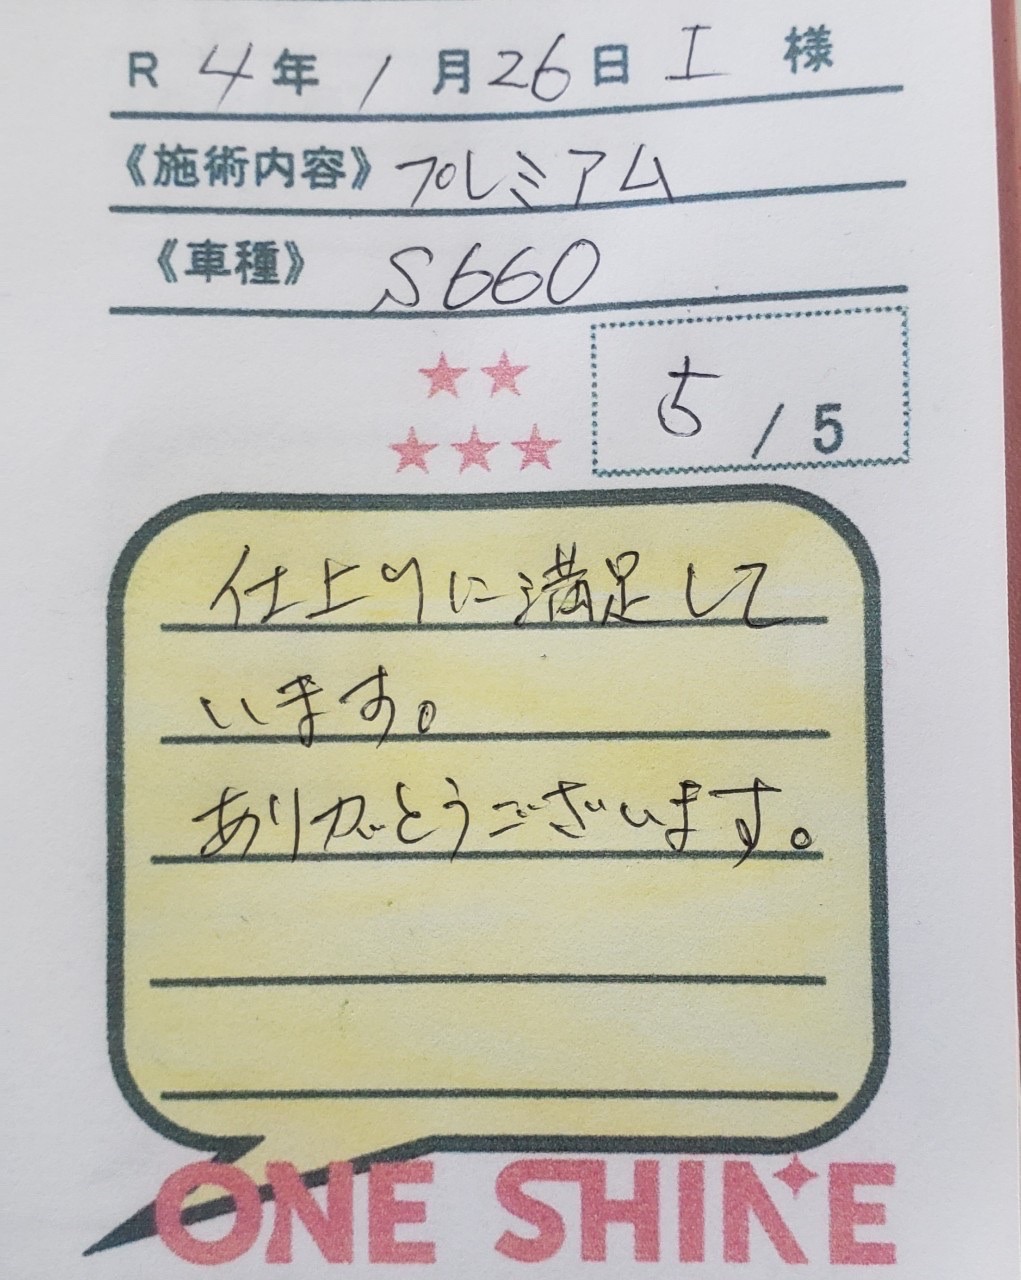 R 4年 1月26日 I 様
《施術内容》プレミアム
《車種》 S660
★★
★★★
5/5
仕上りに満足して
います。
ありがとうございます。
ONE SHINE